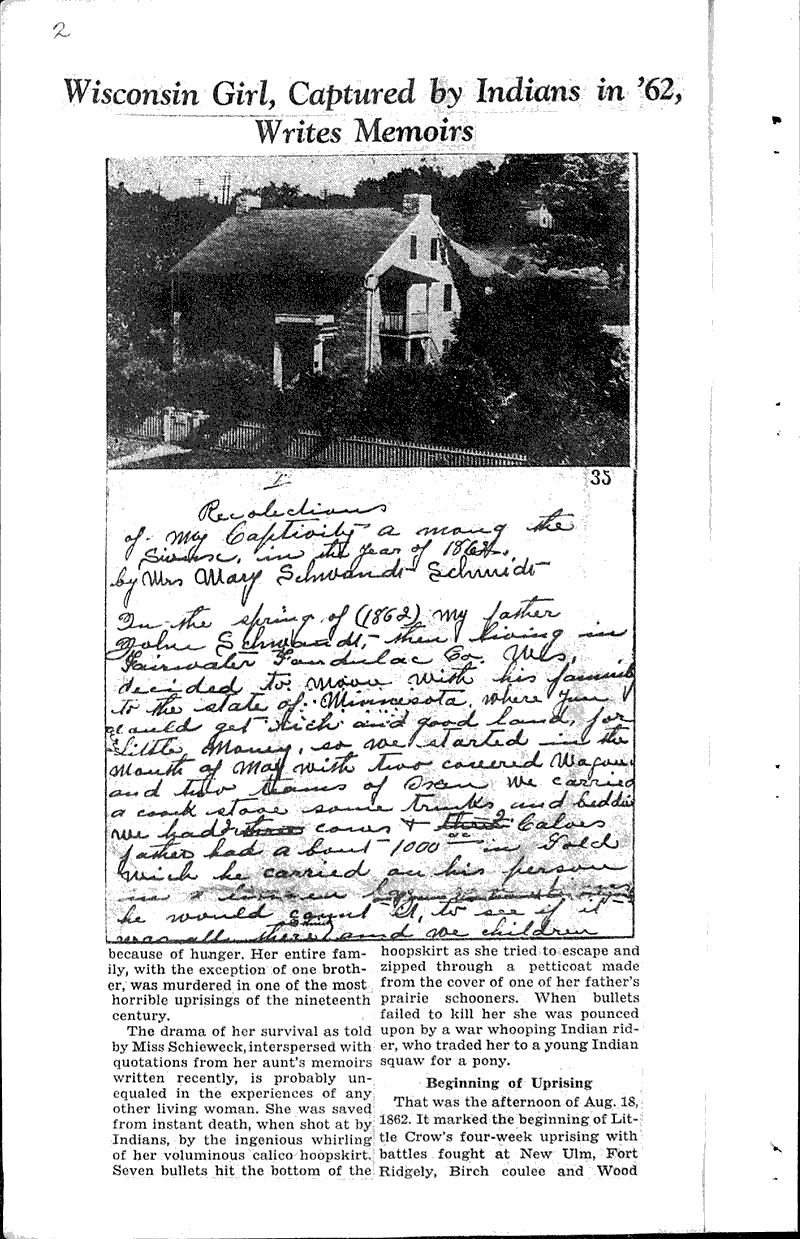 2
Wisconsin Girl, Captured by Indians in '62,
Writes Memoirs
35
I
Recolections
of my Captivity a mong the
Siouxs, in the year of 1862.,
by Mrs Mary Schwandt Schmidt
In the spring of (1862) my father
John Schwandt, then living in
Fairwater Fondulac Co. Wis,
decided to moove with his family
to the state of Minnesota, where you
could get rich and good land, for
Little Money, so we started in the
Month of May with two covered Wagons
and two teams of Oxen we carried
a cook stove some trunks, and beddi
we had cows + 2 Calves
father had a bout 1000 in Gold
wich he carried on his person
in a linnen
he would count it, to see if it
was all there and we children
because of hunger. Her entire fam-
ily, with the exception of one broth-
er, was murdered in one of the most
horrible uprisings of the nineteenth
century.
The drama of her survival as told
by Miss Schieweck, interspersed with
quotations from her aunt's memoirs
written recently, is probably un-
equaled in the experiences of any
other living woman. She was saved
from instant death, when shot at by
Indians, by the ingenious whirling
of her voluminous calico hoopskirt.
Seven bullets hit the bottom of the
hoopskirt as she tried to escape and
zipped through a petticoat made
from the cover of one of her father's
prairie schooners. When bullets
failed to kill her she was pounced
upon by a war whooping Indian rid-
er, who traded her to a young Indian
squaw for a pony.
Beginning of Uprising
That was the afternoon of Aug. 18,
1862. It marked the beginning of Lit-
tle Crow's four-week uprising with
battles fought at New Ulm, Fort
Ridgely, Birch coulee and Wood